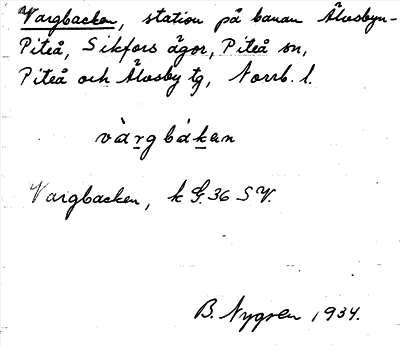 Vargbacken, station på banan Älvsbyn-
Piteå, Sikfors ägor, Piteå sn,
Piteå och Älvsby tg, Norrb. l.
vàrgbàkan
Vargbacken, k G. 36 SV.
B. Nygren 1934.